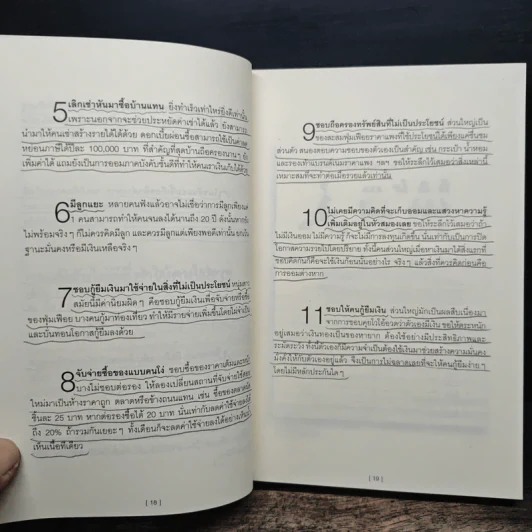 5 เลิกเช่าหันมาซื้อบ้านแทน ยิ่งทำเร็วเท่าไหร่ยิ่งดีเท่านั้น
เพราะนอกจากจะช่วยประหยัดค่าเช่าได้แล้ว ยังสามารถ
นำมาให้คนเช่าสร้างรายได้ได้ด้วย ดอกเบี้ยผ่อนซื้อสามารถใช้เป็นค่าลด
หย่อนภาษีได้ปีละ 100,000 บาท ที่สำคัญที่สุดบ้านถือครองนานๆ ยัง
เพิ่มค่าได้ แถมยังเป็นการออมภาคบังคับชั้นดีที่ทำให้คนเราเงินเก็บได้ด้วย
6 มีลูกแยะ หลายคนฟังแล้วอาจไม่เชื่อว่าการมีลูกเพียงแค่
1 คนสามารถทำให้คนจนลงได้นานถึง 20 ปี ดังนั้นหากยัง
ไม่พร้อมจริงๆ ก็ไม่ควรคิดมีลูก และควรมีลูกแต่เพียงพอดีเท่านั้น ยกเว้น
ฐานะมั่นคงหรือมีเงินเหลือจริงๆ
7 ชอบกู้ยืมเงินมาใช้จ่ายในสิ่งที่ไม่เป็นประโยชน์ หนุ่มสาว
สมัยนี้มีค่านิยมผิดๆ คือชอบกู้ยืมเงินเพื่อจับจ่ายซื้อ
ของฟุ่มเฟือย บางคนกู้มาท่องเที่ยว ทำให้มีรายจ่ายเพิ่มขึ้นโดยไม่จำเป็น
และบั่นทอนโอกาสกู้ยืมลงด้วย
8 จับจ่ายซื้อของแบบคนโง่ ชอบซื้อของราคาเต็มและ
บางไม่ชอบต่อรอง ให้ลองเปลี่ยนสถานที่จับจ่ายใช้สอย
ใหม่มาเป็นห้างราคาถูก ตลาดหรือข้างถนนแทน เช่น ซื้อของตลาดนัด
ชิ้นละ 25 บาท หากต่อรองซื้อได้ 20 บาท นั่นเท่ากับลดค่าใช้จ่ายลงได้
ถึง 20% ถ้ารวมกันเยอะๆ ทั้งเดือนก็จะลดค่าใช้จ่ายลงได้อย่าง
เห็นเนื้อทีเดียว
[ 18 ]
9 ชอบถือครองทรัพย์สินที่ไม่เป็นประโยชน์ ส่วนใหญ่เป็น
ของสะสมฟุ่มเฟือยราคาแพงที่ใช้ประโยชน์ได้เพียงแค่ชื่นชม
ส่วนตัว สนองตอบความชอบของตัวเองเป็นสำคัญ เช่น กระเป๋า น้ำหอม
และรองเท้าแบรนด์เนมราคาแพง ฯลฯ ขอให้ระลึกไว้เสมอว่าสิ่งเหล่านี้
เหมาะสมที่จะทำต่อเมื่อรวยแล้วเท่านั้น
10 ไม่เคยมีความคิดที่จะเก็บออมและแสวงหาความรู้
เพิ่มเติมอยู่ในหัวสมองเลย ขอให้ระลึกไว้เสมอว่าถ้า
ไม่มีเงินออม ไม่มีความรู้ ก็จะไม่มีการลงทุนเกิดขึ้น นั่นเท่ากับเป็นการปิด
โอกาสความรวยไปโดยปริยาย ทั้งนี้คนส่วนใหญ่เมื่อหาเงินได้สิ่งแรกที่
ชอบคิดกันก็คือจะใช้เงินก้อนนั้นอย่างไร จริงๆ แล้วสิ่งที่ควรคิดก่อนคือ
การออมต่างหาก
11 ชอบให้คนกู้ยืมเงิน ส่วนใหญ่มักเป็นผลสืบเนื่องมา
จากการชอบคุยโวโอ้อวดว่าตัวเองมีเงิน ขอให้ตระหนัก
อยู่เสมอว่าเงินทองเป็นของหายาก ต้องใช้อย่างมีประสิทธิภาพและ
ระมัดระวัง ทั้งนี้ตัวเองก็มีความจำเป็นต้องใช้เงินมาช่วยสร้างความมั่นคง
มั่งคั่งให้กับตัวเองอยู่แล้ว จึงเป็นการไม่ฉลาดเลยที่จะให้คนกู้ยืมง่ายๆ
โดยไม่มีหลักประกันใดๆ
[ 19 ]